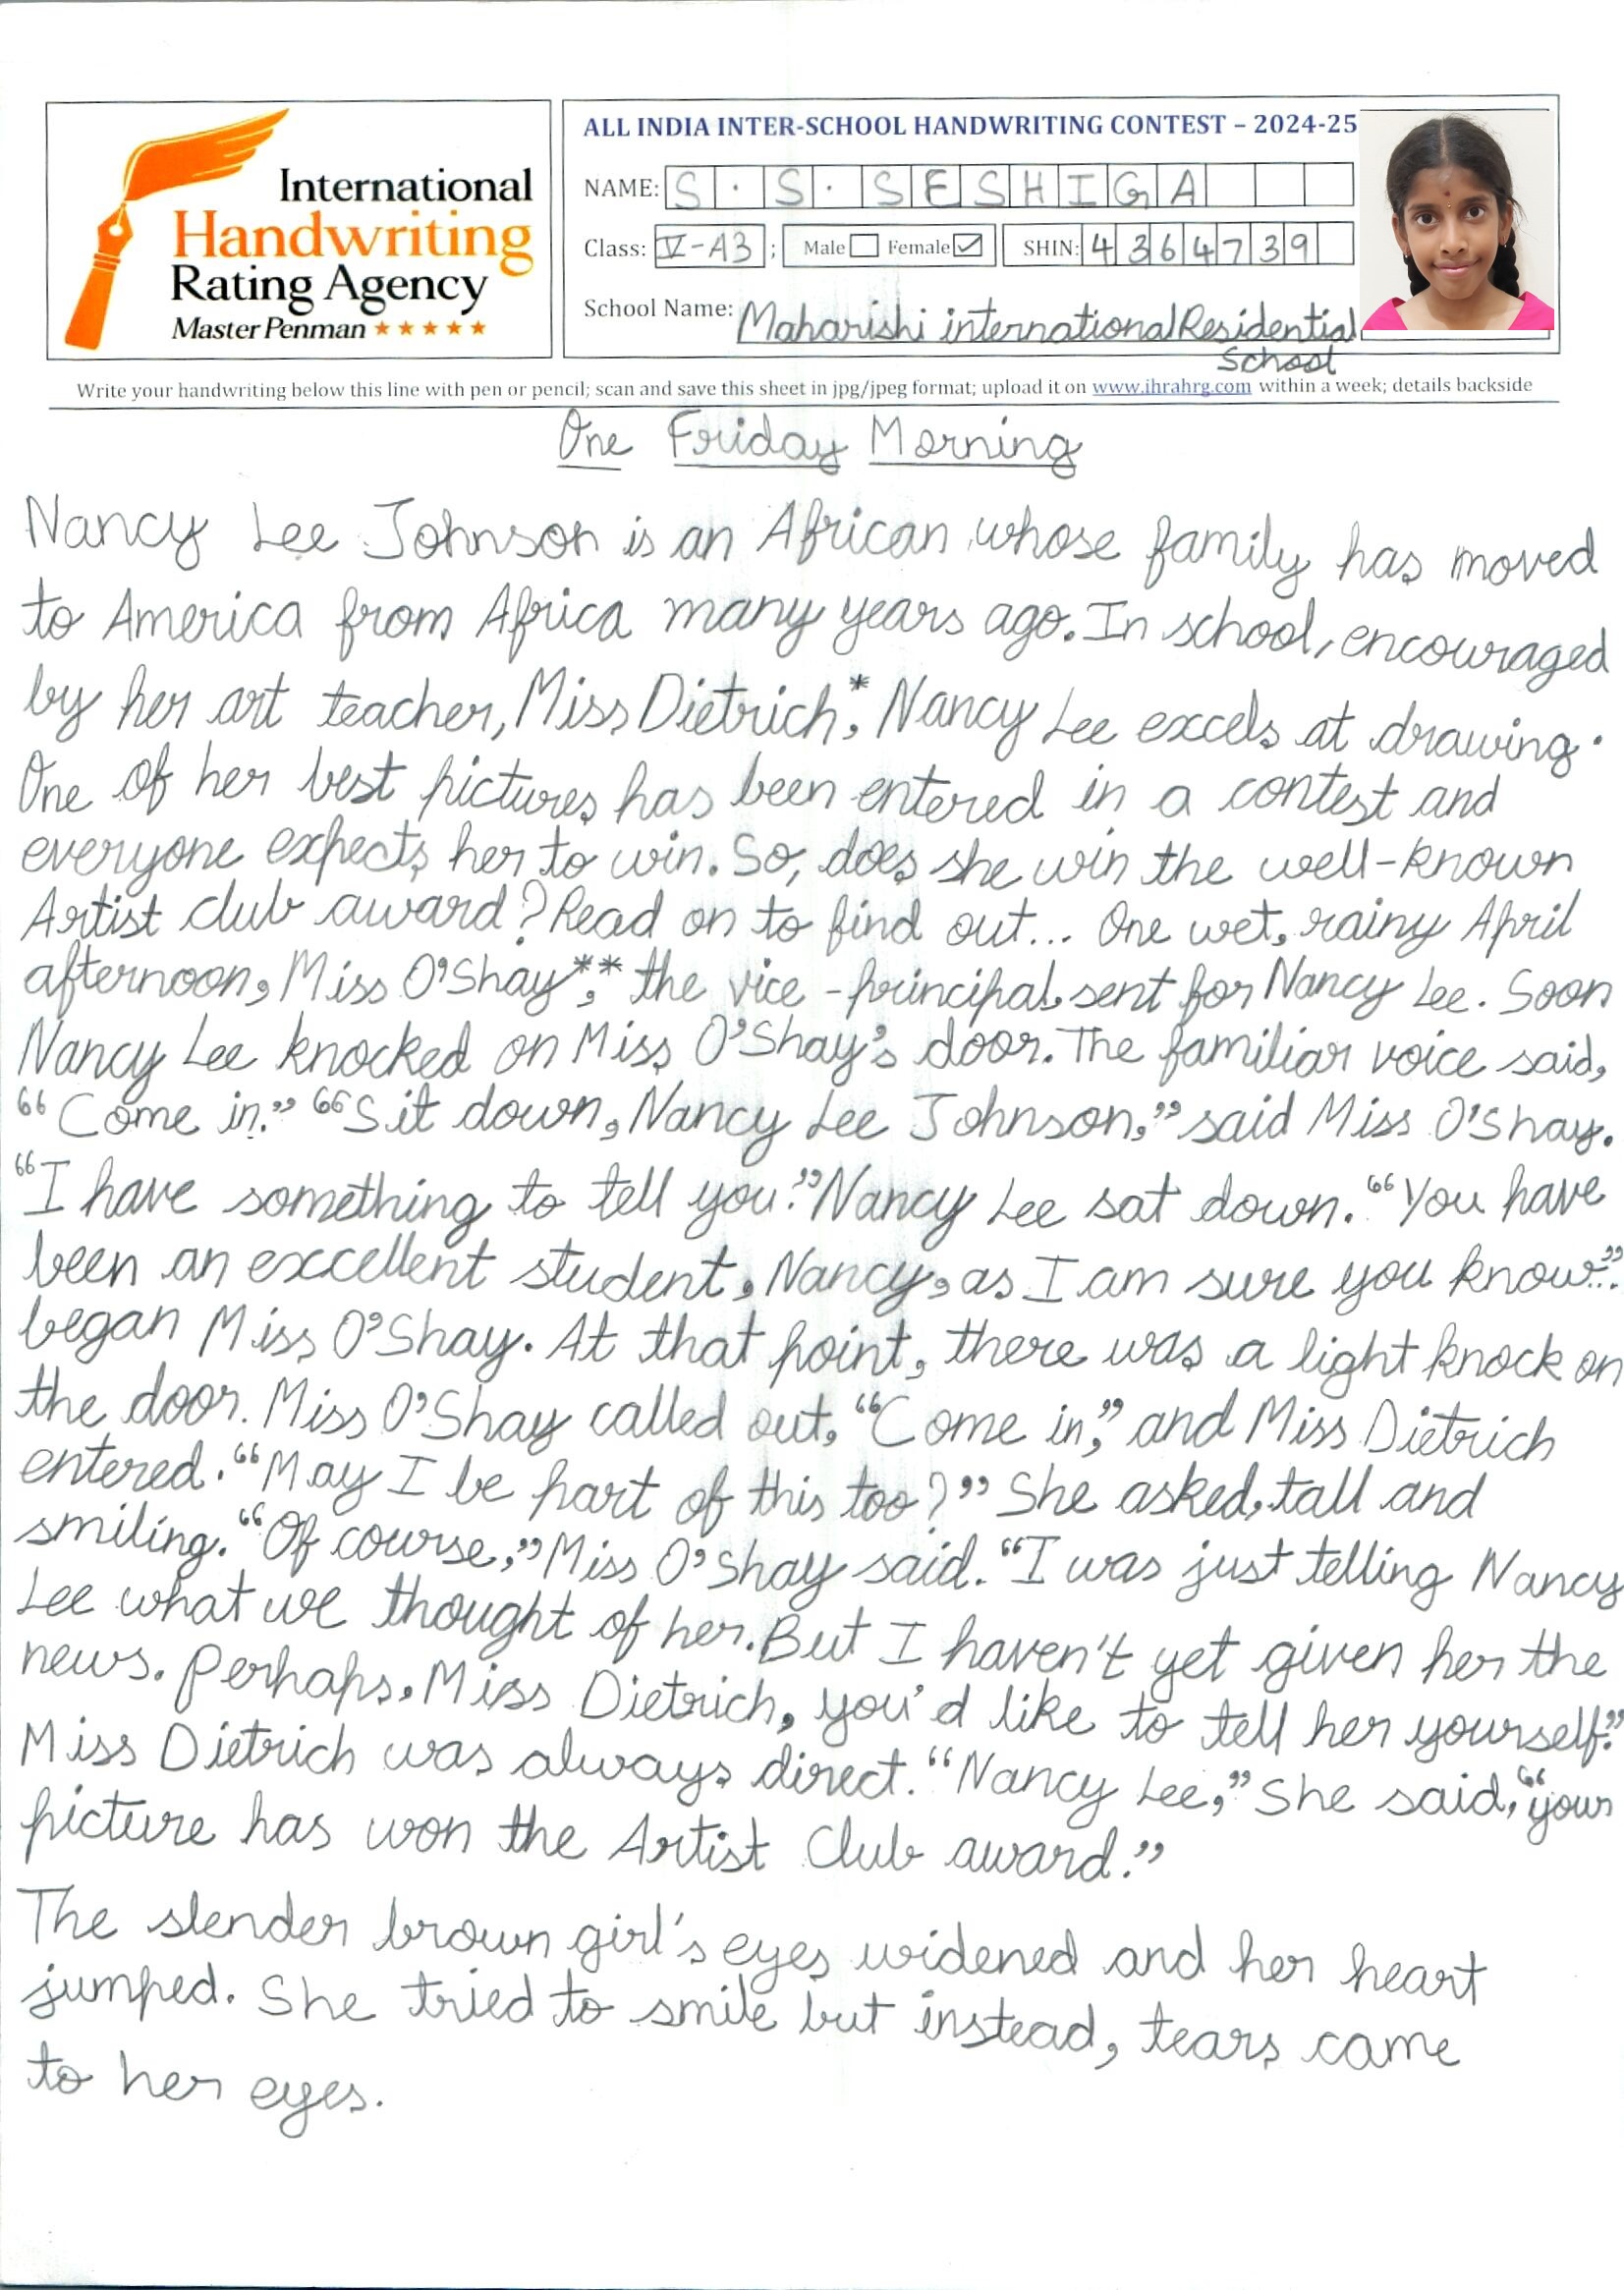 International
Handwriting
Rating Agency
Master Penman
ALL INDIA INTER-SCHOOL HANDWRITING CONTEST – 2024-25
NAME: S . S . SESHIGA
Class: V-A3 ; Male Female ✓ SHIN: 4364739
School Name: Maharishi international Residential
School
Write your handwriting below this line with pen or pencil; scan and save this sheet in jpg/jpeg format; upload it on www.ihrahrg.com within a week; details backside
One Friday Morning
Nancy Lee Johnson is an African whose family has moved
to America from Africa many years ago. In school, encouraged
by her art teacher, Miss Dietrich*, Nancy Lee excels at drawing.
One of her best pictures has been entered in a contest and
everyone expects her to win. So, does she win the well-known
Artist club award? Read on to find out... One wet, rainy April
afternoon, Miss O'Shay**, the vice-principal, sent for Nancy Lee. Soon
Nancy Lee knocked on Miss O'Shay's door. The familiar voice said,
“Come in.” “Sit down, Nancy Lee Johnson,” said Miss O'Shay.
“I have something to tell you.” Nancy Lee sat down. “You have
been an excellent student, Nancy, as I am sure you know...”
began Miss O'Shay. At that point, there was a light knock on
the door. Miss O'Shay called out, “Come in,” and Miss Dietrich
entered. “May I be part of this too?” She asked, tall and
smiling. “Of course,” Miss O'Shay said. “I was just telling Nancy
Lee what we thought of her. But I haven't yet given her the
news. Perhaps, Miss Dietrich, you'd like to tell her yourself.”
Miss Dietrich was always direct. “Nancy Lee,” She said, “your
picture has won the Artist Club award.”
The slender brown girl's eyes widened and her heart
jumped. She tried to smile but instead, tears came
to her eyes.